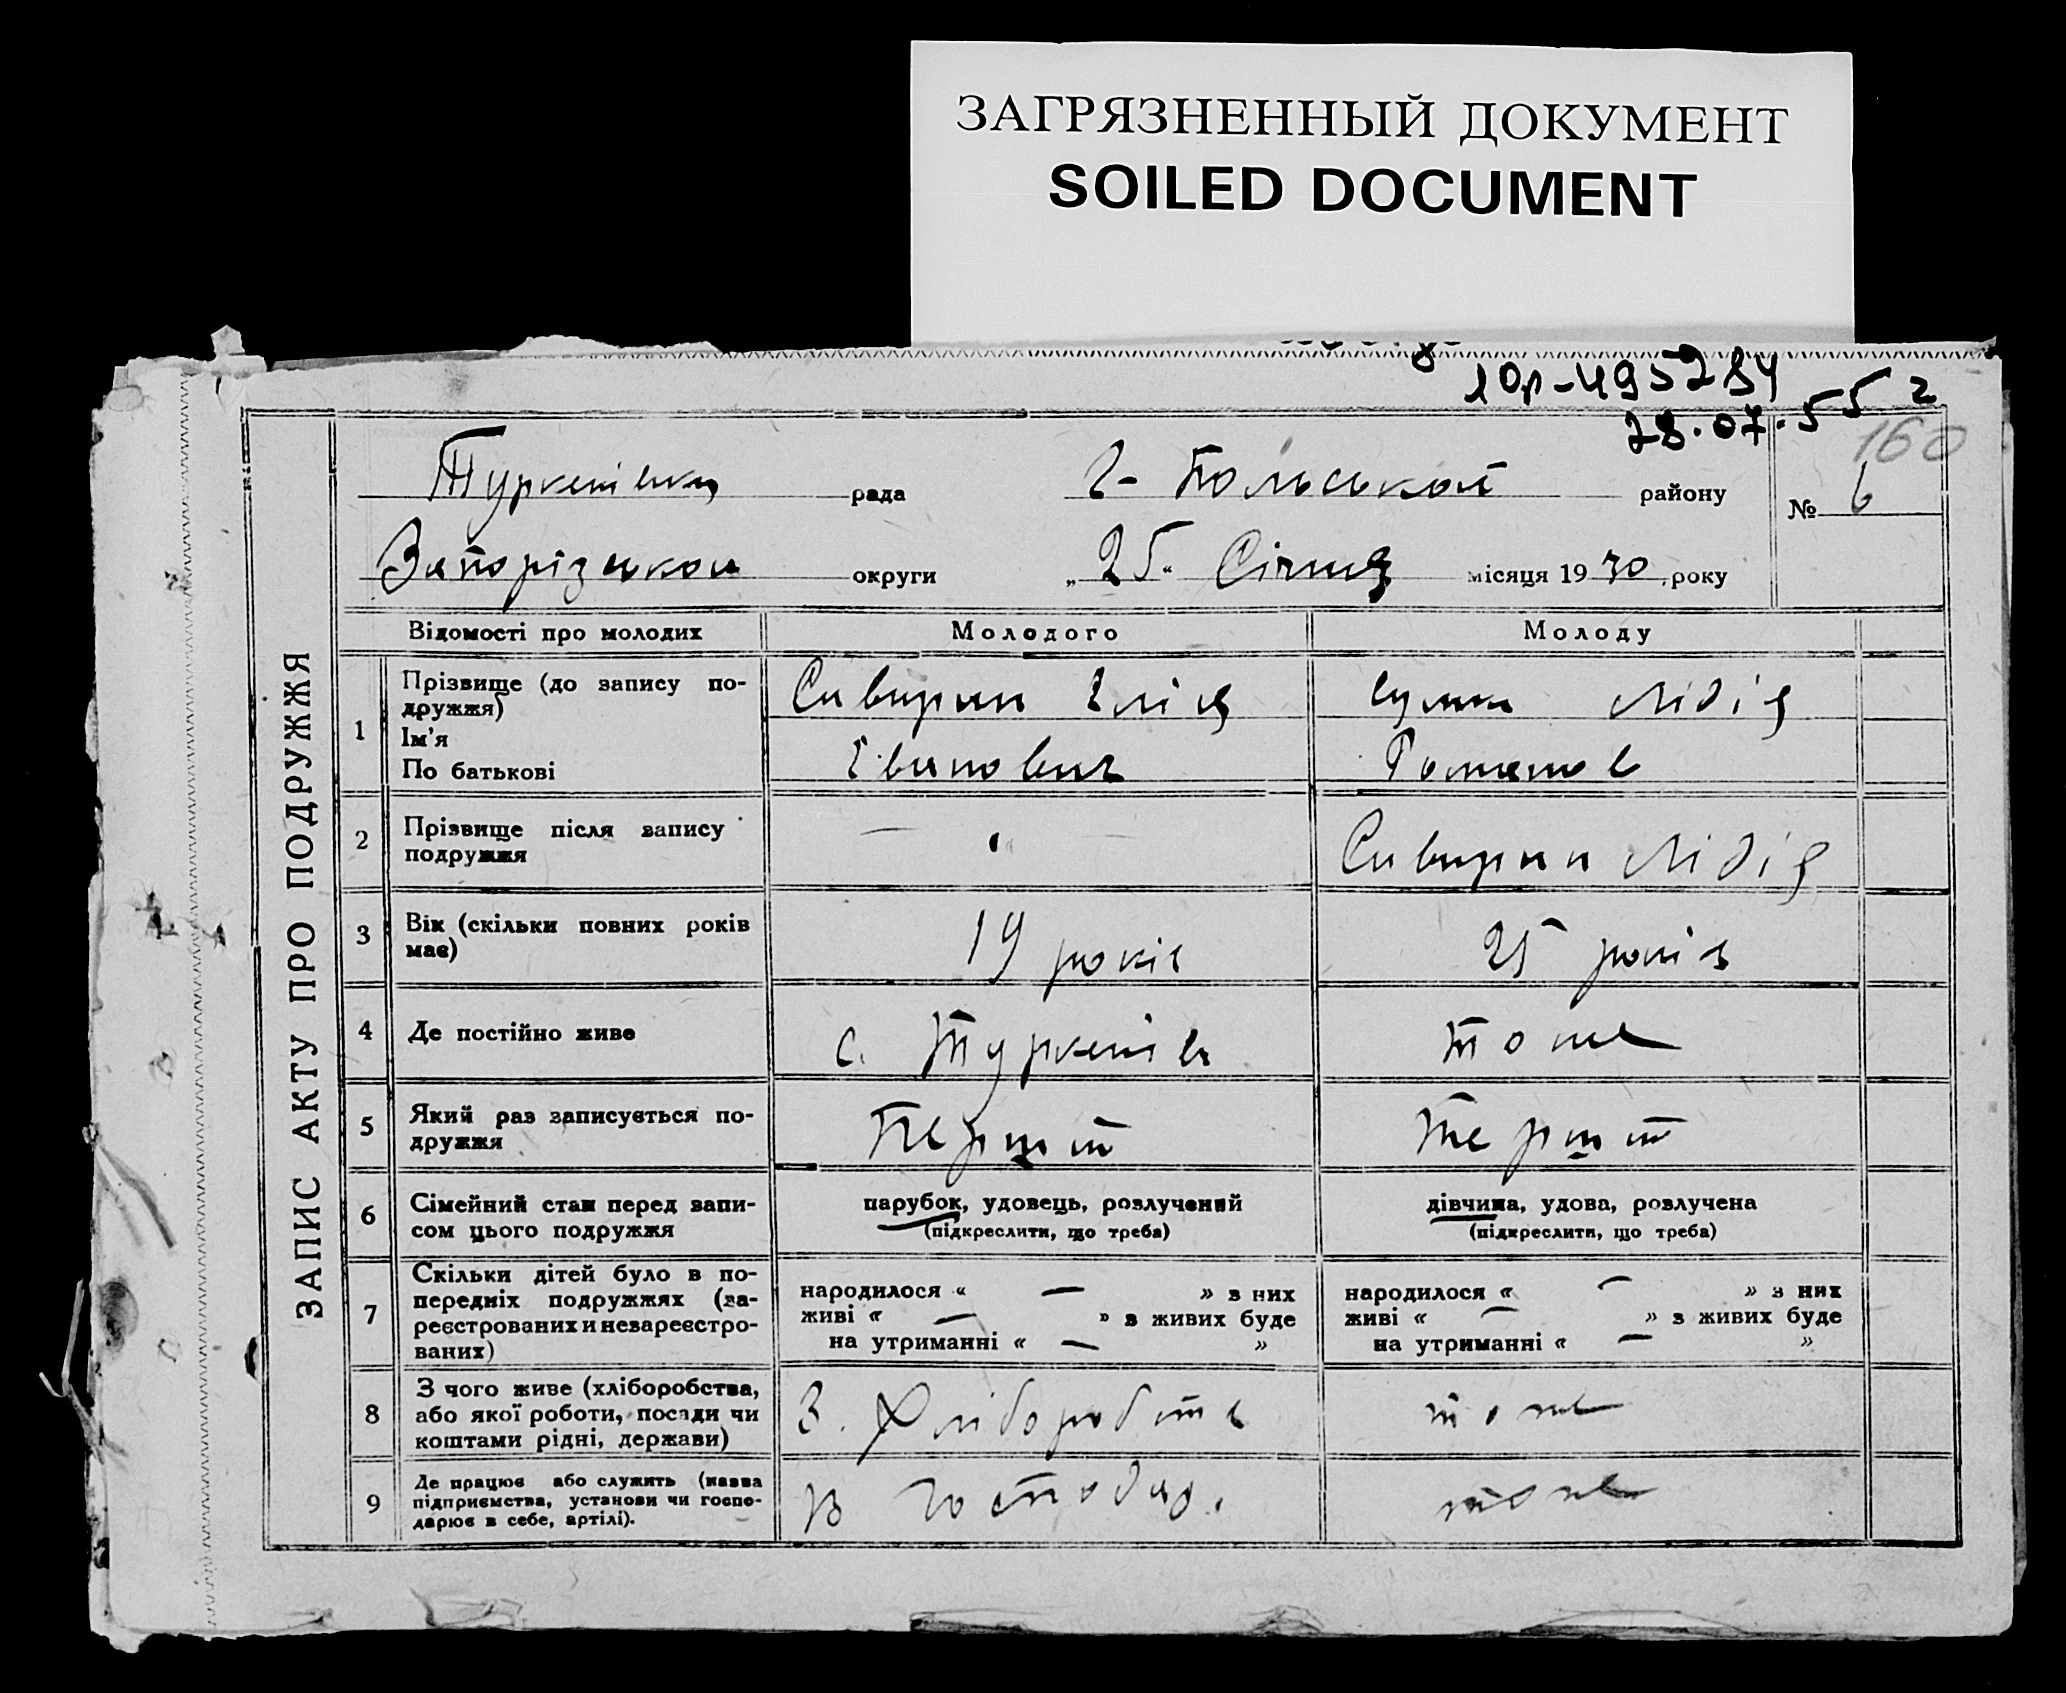 ЗАГРЯЗНЕННЫЙ ДОКУМЕНТ
SOILED DOCUMENT
1 Ор-495284
28.07.55 г
160
рада Г-Польської району № 6
Запорізької округи „25“ Січня місяця 1930 року
ЗАПИС АКТУ ПРО ПОДРУЖЖЯ
Відомості про молодих Молодого Молоду
1 Прізвище (до запису по-
дружжя)
Ім'я
По батькові
Сивирин Ілія
Іванович
Лідія
Романов
2 Прізвище після запису
подружжя
— " Сивирин Лідія
3 Вік (скільки повних років
має)
19 років 25 років
4 Де постійно живе с. Туркенів тоже
5 Який раз записується по-
дружжя
Перший Перший
6 Сімейний стан перед запи-
сом цього подружжя
парубок, удовець, розлучений
(підкреслити, що треба)
дівчина, удова, розлучена
(підкреслити, що треба)
7 Скільки дітей було в по-
передніх подружжях (за-
реєстрованих и незареєстро-
ваних)
народилося « — » з них
живі « — » з живих буде
на утриманні « — »
народилося « — » з них
живі « — » з живих буде
на утриманні « — »
8 З чого живе (хліборобства,
або якої роботи, посади чи
коштами рідні, держави)
З. Хліборобств тоже
9 Де працює або служить (назва
підприємства, установи чи госпо-
дарює в себе, артілі).
В господар. тоже